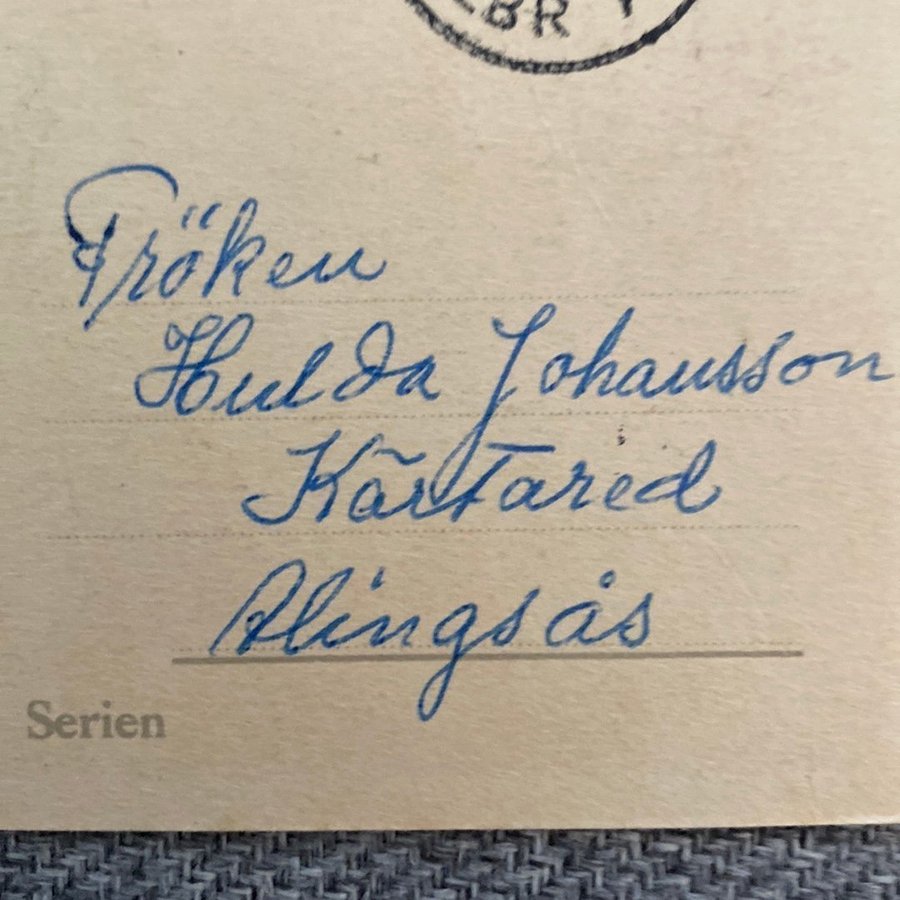 BR
Fröken
Hulda Johansson
Kärtared
Alingsås
Serien